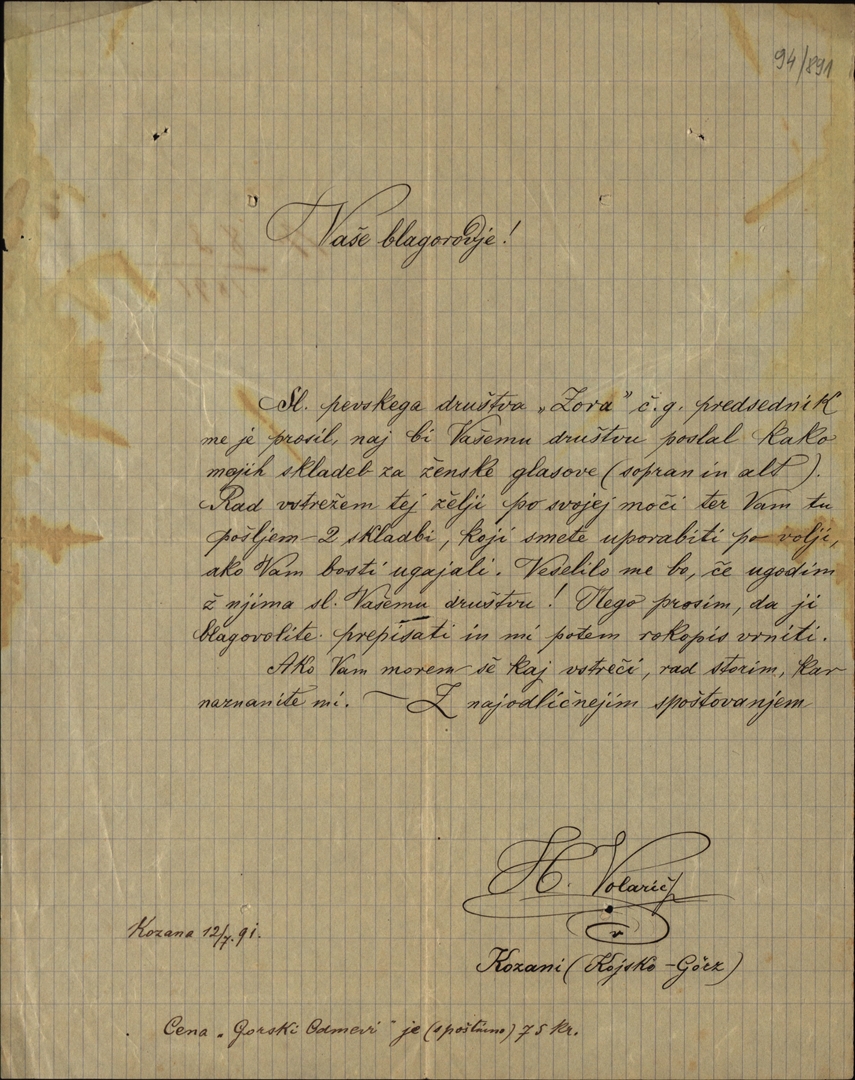 94/891
Vaše blagorodje!
Sl. pevskega društva „Zora" č.g. predsednik
me je prosil, naj bi Vašemu društvu poslal kako
mojih skladeb za ženske glasove (sopran in alt).
Rad vstrežem tej želji po svojej moči ter Vam tu
pošljem 2 skladbi, koji smete uporabiti po volji,
ako Vam bosti ugajali. Veselilo me bo, če ugodim
ž njima sl. Vašemu društvu! Nego prosim, da ji
blagovolite prepisati in mi potem rokopis vrniti.
Ako Vam morem še kaj vstreči, rad storim, kar
naznanite mi. — Z najodličnejim spoštovanjem
H. Volarič
v
Kozana 12/7.91.
Kozani (Kojsko-Görz)
Cena „Gorski Odmevi" je (spoštnino) 75 kr.